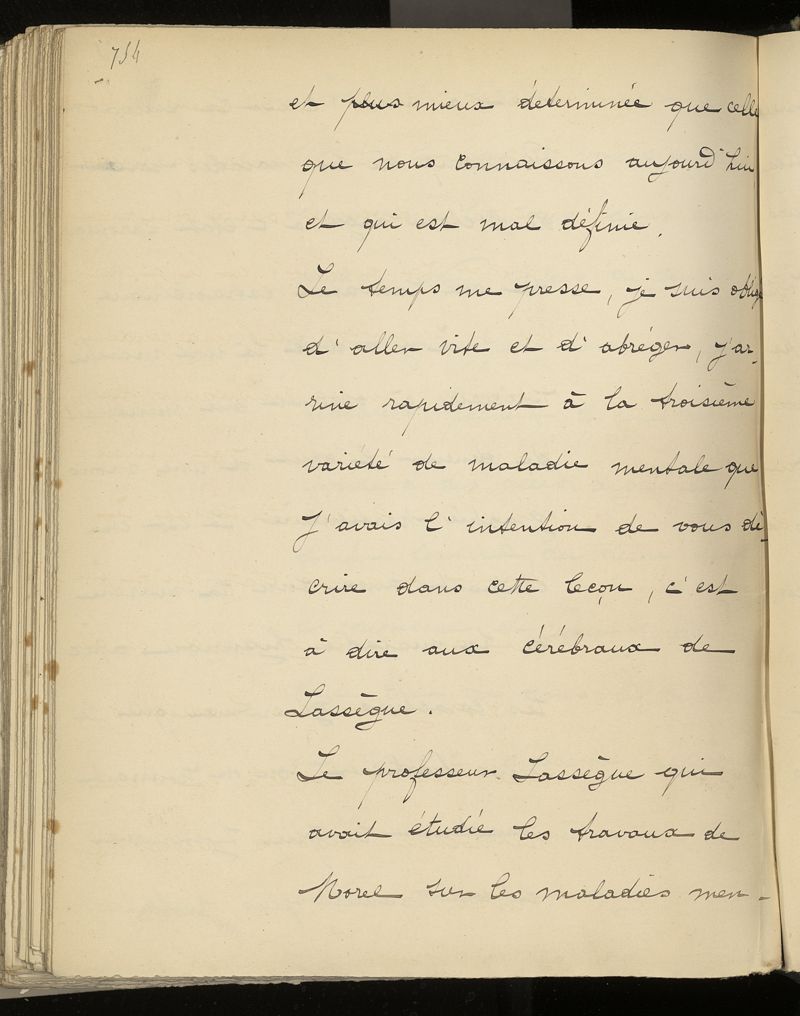 754
et plus mieux déterminée que celle
que nous connaissons aujourd'hui
et qui est mal définie.
Le temps me presse, je suis oblig
d'aller vite et d'abréger, j'ar-
rive rapidement à la troisième
variété de maladie mentale que
j'avais l'intention de vous dé-
crire dans cette leçon, c'est
à dire aux cérébraux de
Lassègue.
Le professeur Lassègue qui
avait étudié les travaux de
Morel sur les maladies men-